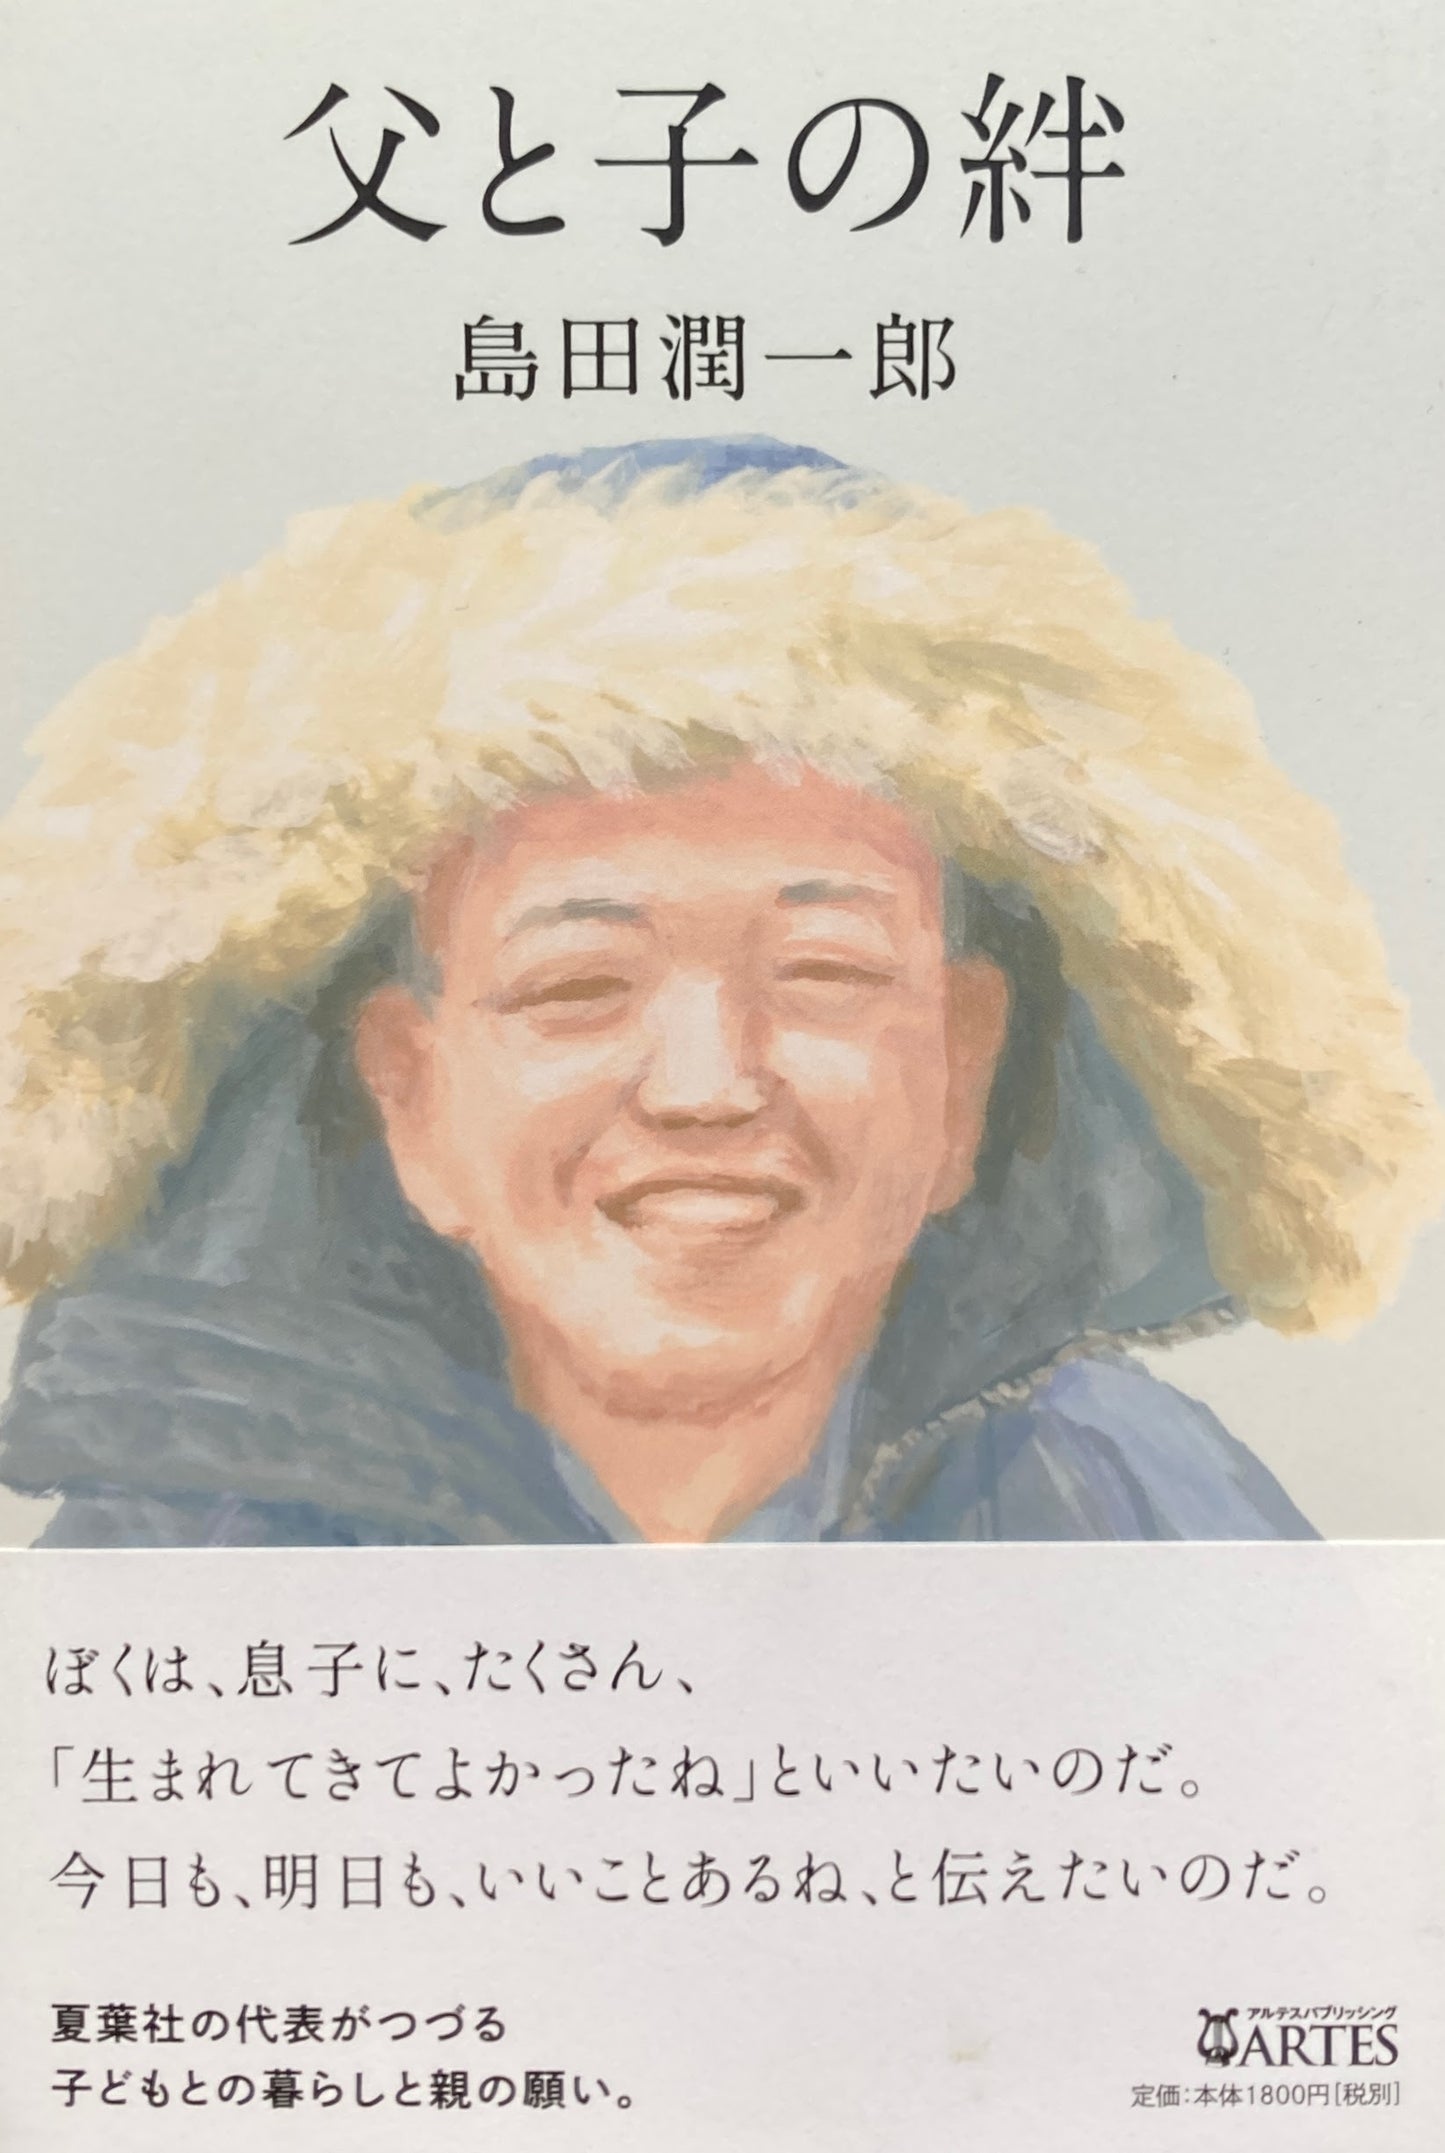 父と子の絆
島田潤一郎
ぼくは、息子に、たくさん、
「生まれてきてよかったね」といいたいのだ。
今日も、明日も、いいことあるね、と伝えたいのだ。
夏葉社の代表がつづる
子どもとの暮らしと親の願い。
アルテスパブリッシング
ARTES
定価：本体1800円[税別]